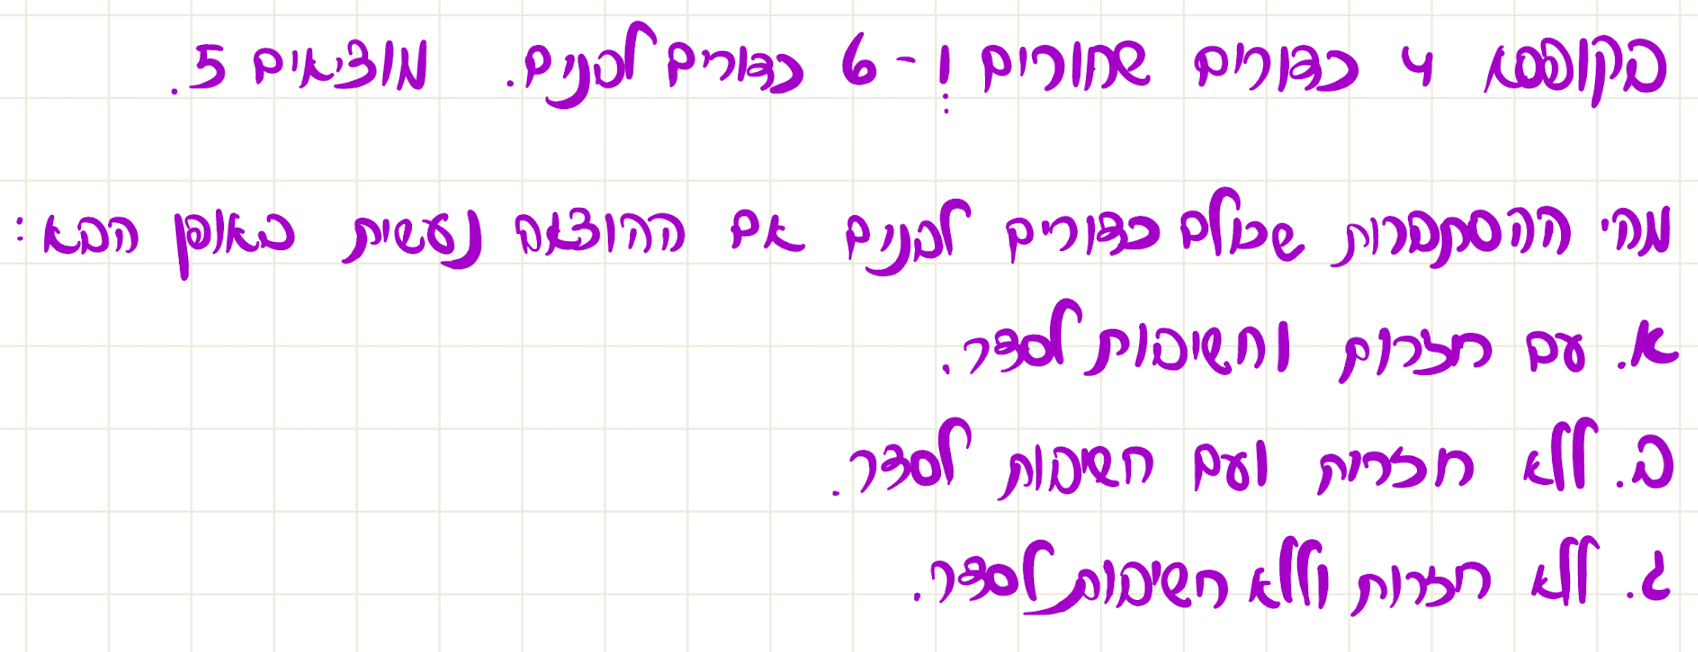 בקופסא 4 כדורים שחורים ו-6 כדורים לבנים. מוציאים 5.
מהי ההסתברות שכולם כדורים לבנים אם ההוצאה נעשית באופן הבא:
א. עם חזרות וחשיבות לסדר.
ב. ללא חזרות ועם חשיבות לסדר.
ג. ללא חזרות וללא חשיבות לסדר.